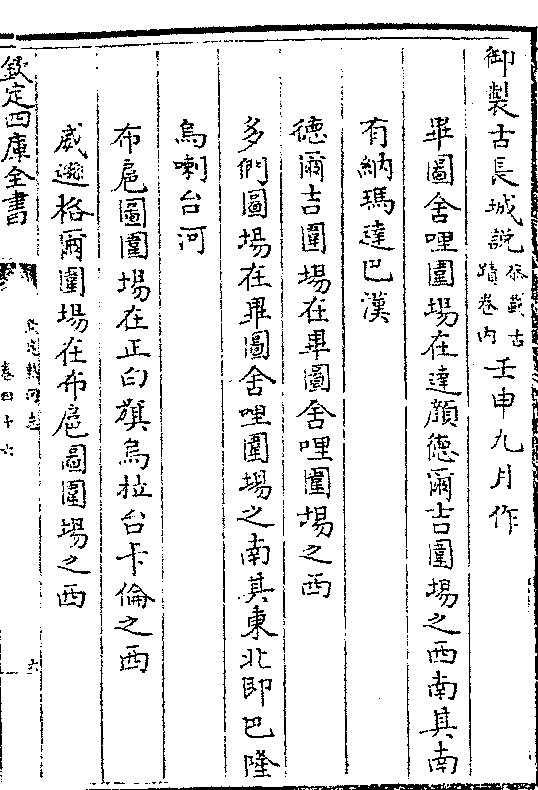 御製古長城說恭載古蹟卷內壬申九月作
畢圖舍哩圍場在達顏德爾吉圍場之西南其南
有納瑪達巴漢
德爾吉圍場在畢圖舍哩圍場之西
多們圖場在畢圖舍哩圍場之南其東北即巴隆
烏喇台河
布扈圖圍場在正白旗烏拉台卡倫之西
威遜格爾圍場在布扈圖圍場之西
欽定四庫全書
欽定熱河志
卷四十六
六